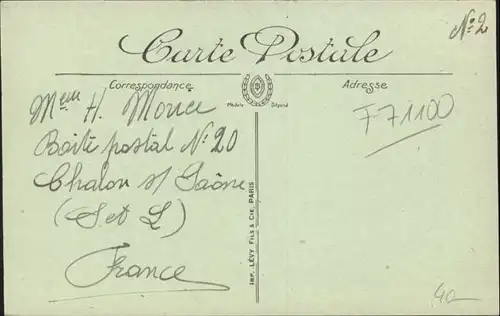 No 2
Carte Postale
Correspondance
Adresse
Modèle Déposé
Mme H. Morice
Boite postal No 20
Chalon s/ Saône
(S. et L)
France
F 71100
IMP. LÉVY FILS & CIE, PARIS
40